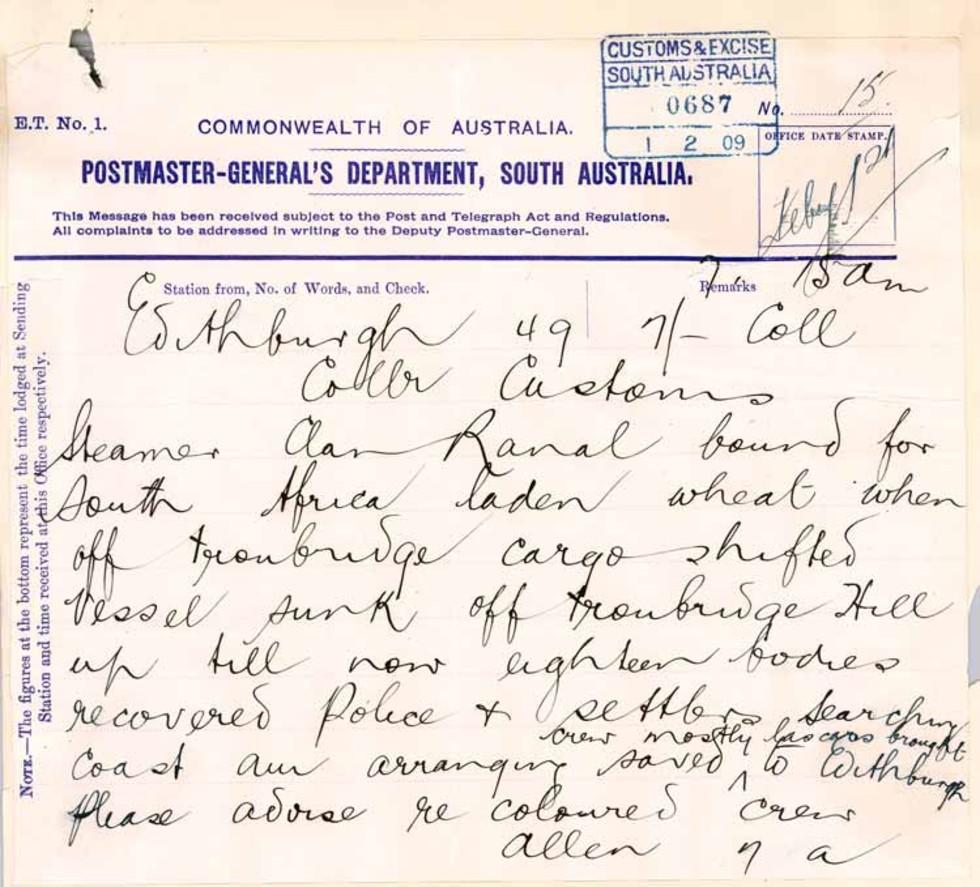 CUSTOMS & EXCISE
SOUTH AUSTRALIA
0687
1 2 09
No. 15.
E.T. No. 1.
COMMONWEALTH OF AUSTRALIA.
OFFICE DATE STAMP.
POSTMASTER-GENERAL'S DEPARTMENT, SOUTH AUSTRALIA.
This Message has been received subject to the Post and Telegraph Act and Regulations.
All complaints to be addressed in writing to the Deputy Postmaster-General.
NOTE.—The figures at the bottom represent the time lodged at Sending
Station and time received at this Office respectively.
Station from, No. of Words, and Check.
Remarks
15 am
Edithburgh 49 7/- Coll
Collr Customs
Steamer Clan Ranal bound for
South Africa laden wheat when
off troubridge cargo shifted
Vessel sunk off troubridge Hill
up till now eighteen bodies
recovered Police + settlers searching
crew mostly lascars brought
Coast am arranging saved ^ to Edithburgh
Please advise re coloured crew
Allen 7 a